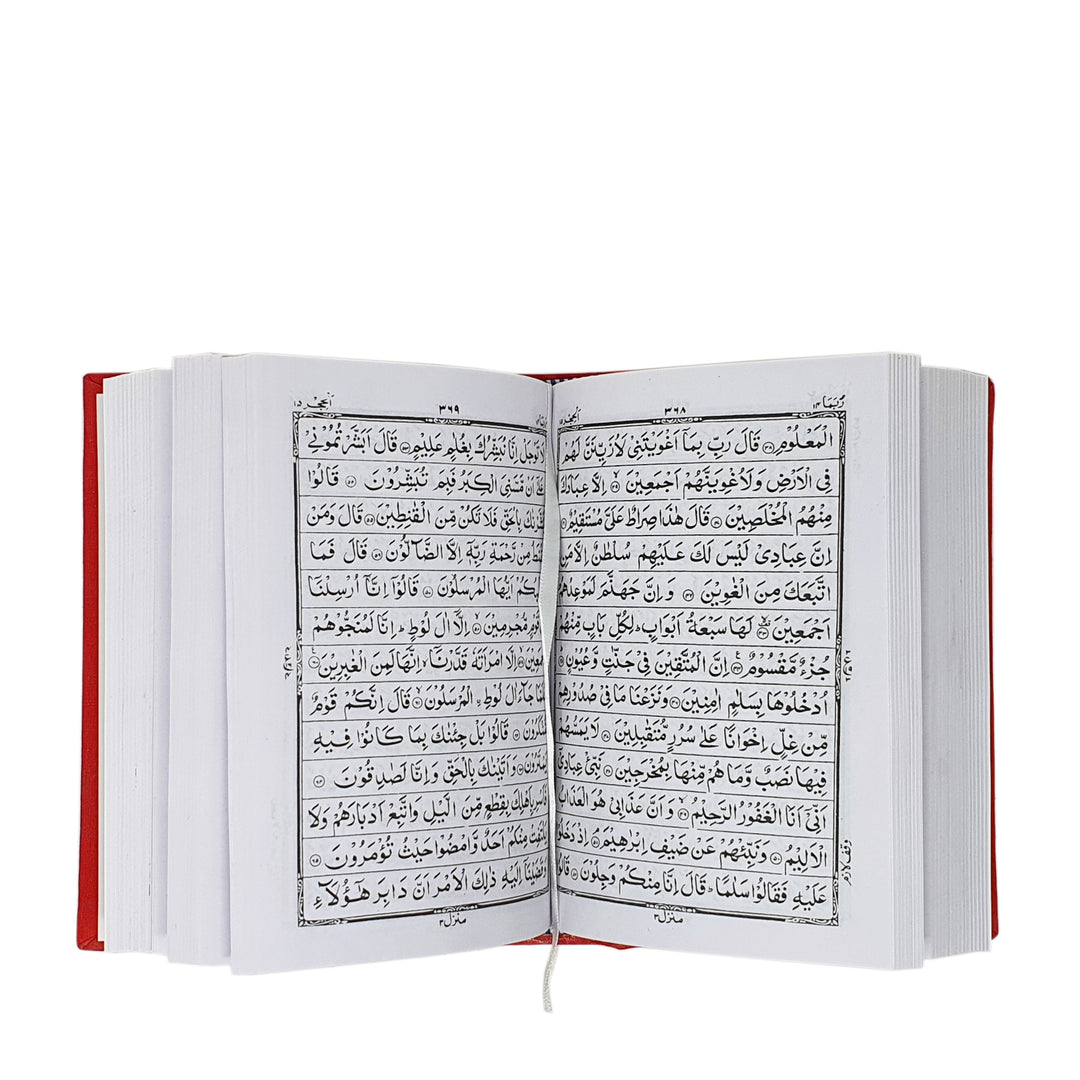 رُبَمَا ١٤
٣٦٨
الْمَعْلُوْمِ ﴿٣٨﴾ قَالَ رَبِّ بِمَاۤ اَغْوَيْتَنِىْ لَاُزَيِّنَنَّ لَهُمْ
فِى الْاَرْضِ وَلَاُغْوِيَنَّهُمْ اَجْمَعِيْنَ ﴿٣٩﴾ اِلَّا عِبَادَكَ
مِنْهُمُ الْمُخْلَصِيْنَ ﴿٤٠﴾ قَالَ هٰذَا صِرَاطٌ عَلَىَّ مُسْتَقِيْمٌ ﴿٤١﴾
اِنَّ عِبَادِىْ لَيْسَ لَكَ عَلَيْهِمْ سُلْطٰنٌ اِلَّا مَنِ
اتَّبَعَكَ مِنَ الْغٰوِيْنَ ﴿٤٢﴾ وَاِنَّ جَهَنَّمَ لَمَوْعِدُهُمْ
اَجْمَعِيْنَ ﴿٤٣﴾ لَهَا سَبْعَةُ اَبْوَابٍ ؕ لِكُلِّ بَابٍ مِّنْهُمْ
جُزْءٌ مَّقْسُوْمٌ ﴿٤٤﴾ اِنَّ الْمُتَّقِيْنَ فِىْ جَنّٰتٍ وَّعُيُوْنٍ ﴿٤٥﴾
اُدْخُلُوْهَا بِسَلٰمٍ اٰمِنِيْنَ ﴿٤٦﴾ وَنَزَعْنَا مَا فِىْ صُدُوْرِهِمْ
مِّنْ غِلٍّ اِخْوَانًا عَلٰى سُرُرٍ مُّتَقٰبِلِيْنَ ﴿٤٧﴾ لَا يَمَسُّهُمْ
فِيْهَا نَصَبٌ وَّمَا هُمْ مِّنْهَا بِمُخْرَجِيْنَ ﴿٤٨﴾ نَبِّئْ عِبَادِىْۤ
اَنِّىْۤ اَنَا الْغَفُوْرُ الرَّحِيْمُ ﴿٤٩﴾ وَاَنَّ عَذَابِىْ هُوَ الْعَذَابُ
الْاَلِيْمُ ﴿٥٠﴾ وَنَبِّئْهُمْ عَنْ ضَيْفِ اِبْرٰهِيْمَ ﴿٥١﴾ اِذْ دَخَلُوْا
عَلَيْهِ فَقَالُوْا سَلٰمًا ؕ قَالَ اِنَّا مِنْكُمْ وَجِلُوْنَ ﴿٥٢﴾ قَالُوْا
وقف لازم
منزل ٣
٣٦٩
الحجر ١٥
لَا تَوْجَلْ اِنَّا نُبَشِّرُكَ بِغُلٰمٍ عَلِيْمٍ ﴿٥٣﴾ قَالَ اَبَشَّرْتُمُوْنِىْ
عَلٰٓى اَنْ مَّسَّنِىَ الْكِبَرُ فَبِمَ تُبَشِّرُوْنَ ﴿٥٤﴾ قَالُوْا
بِالْحَقِّ فَلَا تَكُنْ مِّنَ الْقٰنِطِيْنَ ﴿٥٥﴾ قَالَ وَمَنْ
مِنْ رَّحْمَةِ رَبِّهٖۤ اِلَّا الضَّآلُّوْنَ ﴿٥٦﴾ قَالَ فَمَا
اَيُّهَا الْمُرْسَلُوْنَ ﴿٥٧﴾ قَالُوْۤا اِنَّاۤ اُرْسِلْنَاۤ
قَوْمٍ مُّجْرِمِيْنَ ﴿٥٨﴾ اِلَّاۤ اٰلَ لُوْطٍ ؕ اِنَّا لَمُنَجُّوْهُمْ
اِلَّا امْرَاَتَهٗ قَدَّرْنَاۤ ۙ اِنَّهَا لَمِنَ الْغٰبِرِيْنَ ﴿٦٠﴾
جَآءَ اٰلَ لُوْطِ ۨالْمُرْسَلُوْنَ ﴿٦١﴾ قَالَ اِنَّكُمْ قَوْمٌ
مُّنْكَرُوْنَ ﴿٦٢﴾ قَالُوْا بَلْ جِئْنٰكَ بِمَا كَانُوْا فِيْهِ
يَمْتَرُوْنَ ﴿٦٣﴾ وَاَتَيْنٰكَ بِالْحَقِّ وَاِنَّا لَصٰدِقُوْنَ ﴿٦٤﴾
فَاَسْرِ بِاَهْلِكَ بِقِطْعٍ مِّنَ الَّيْلِ وَاتَّبِعْ اَدْبَارَهُمْ وَلَا
يَلْتَفِتْ مِنْكُمْ اَحَدٌ وَّامْضُوْا حَيْثُ تُؤْمَرُوْنَ ﴿٦٥﴾
وَقَضَيْنَاۤ اِلَيْهِ ذٰلِكَ الْاَمْرَ اَنَّ دَابِرَ هٰٓؤُلَآءِ
منزل ٣